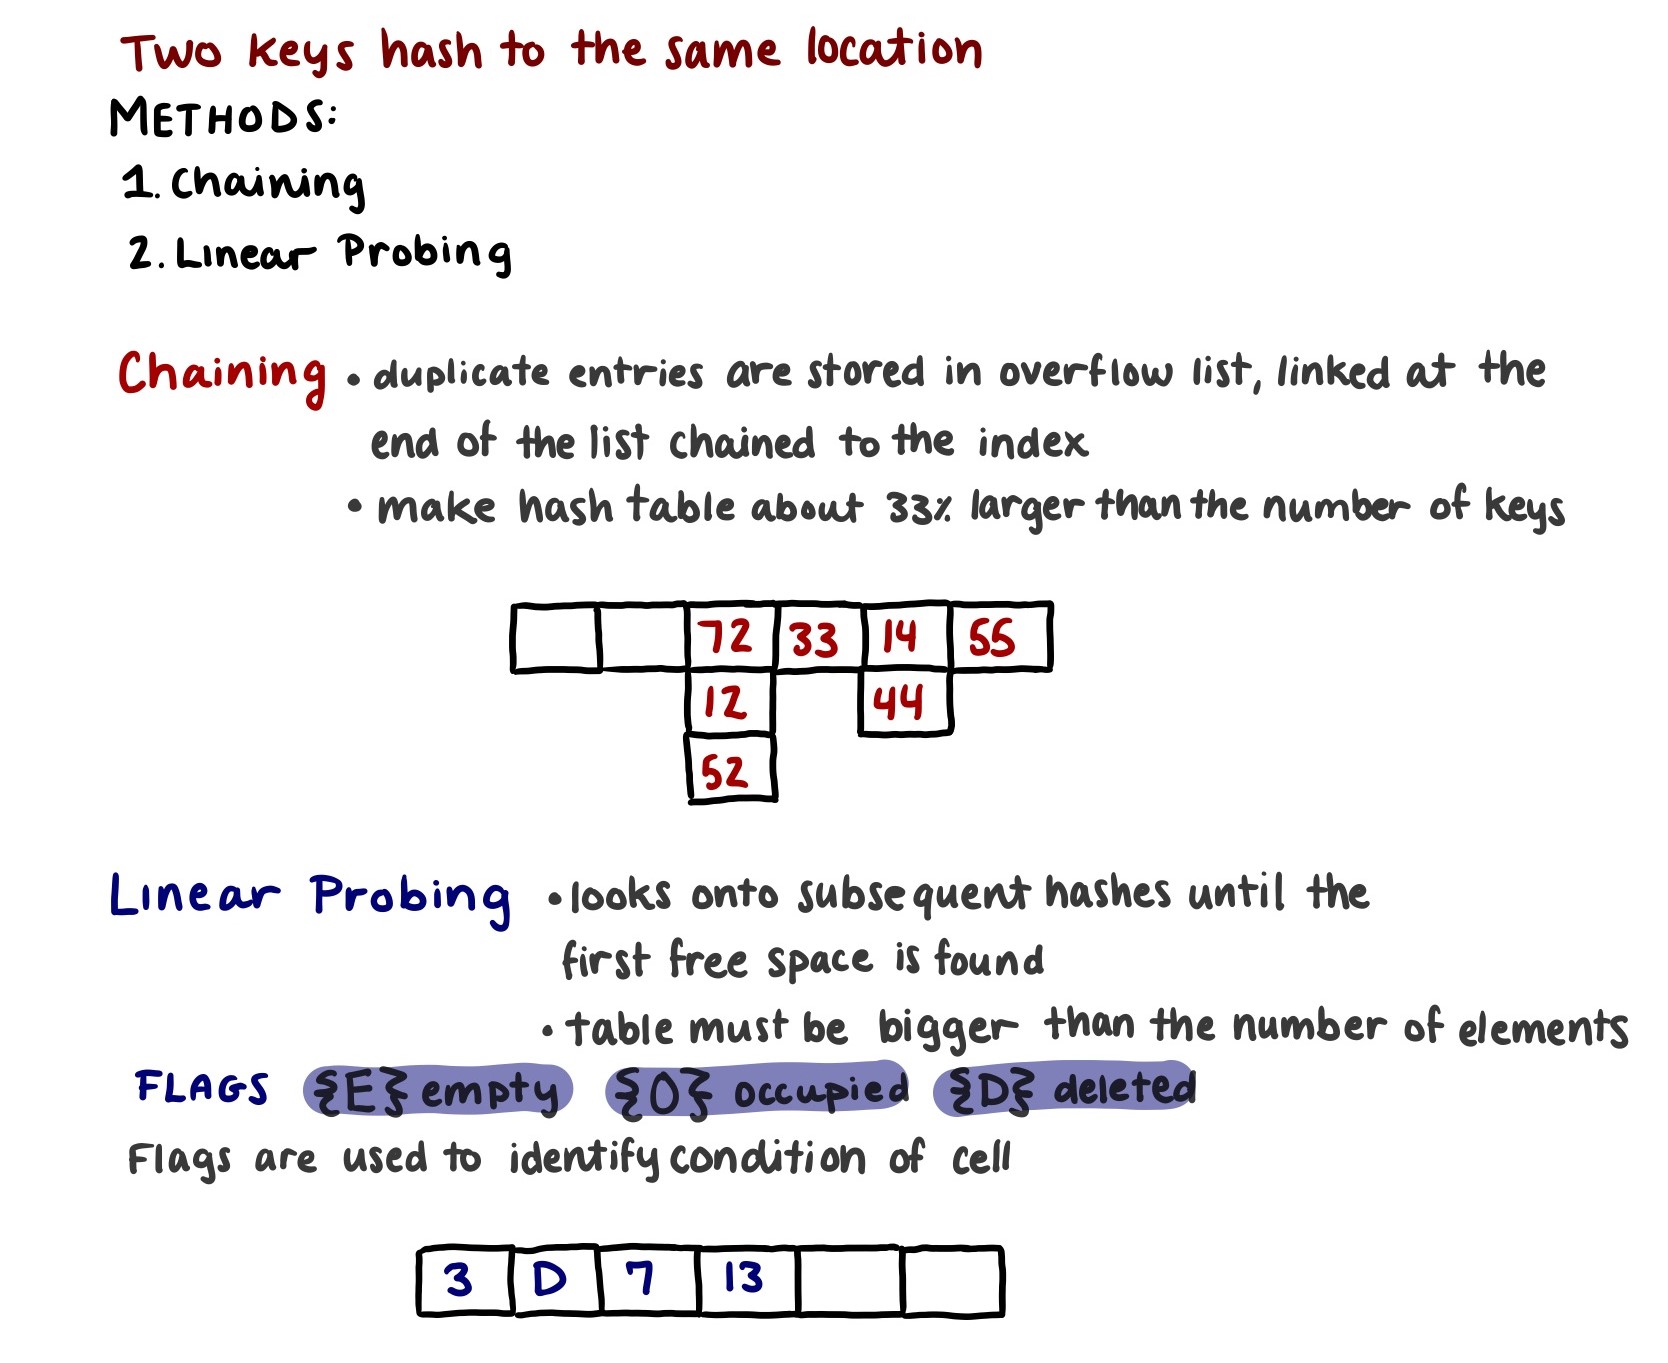 Two keys hash to the same location
METHODS:
1. Chaining
2. Linear Probing
Chaining • duplicate entries are stored in overflow list, linked at the
end of the list chained to the index
• make hash table about 33% larger than the number of keys
72 33 14 55
12 44
52
Linear Probing • looks onto subsequent hashes until the
first free space is found
• table must be bigger than the number of elements
FLAGS {E} empty {O} occupied {D} deleted
Flags are used to identify condition of cell
3 D 7 13